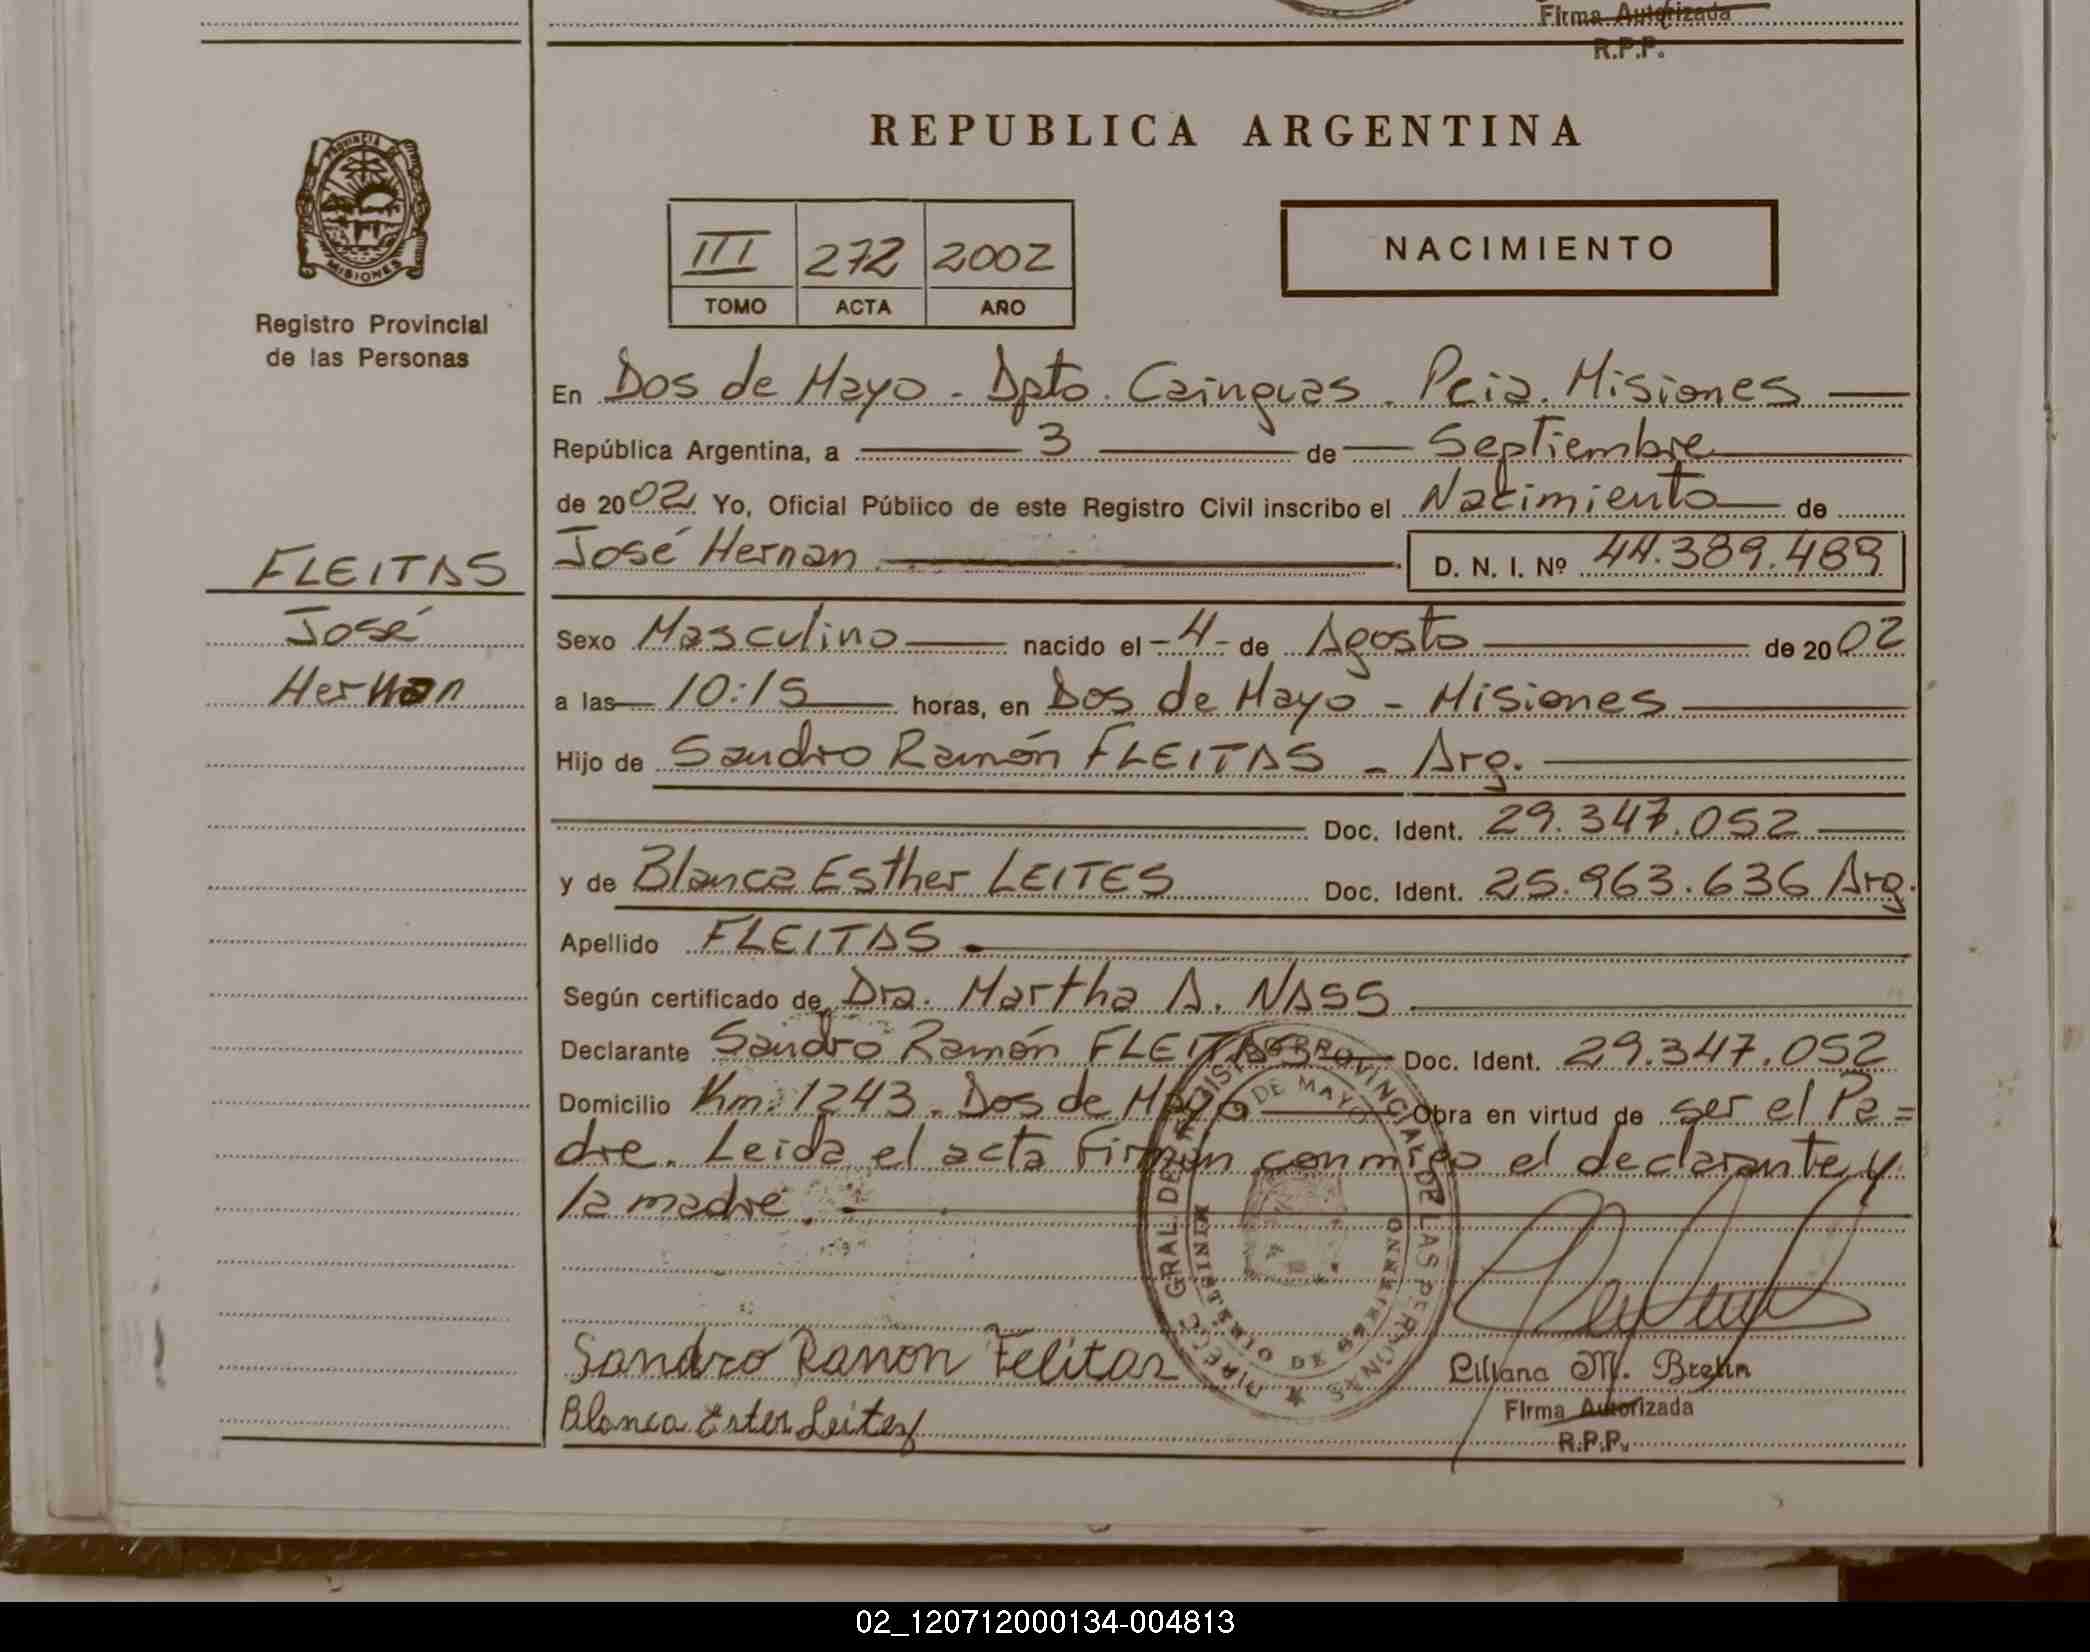 Firma Autorizada
R.P.P.
REPUBLICA ARGENTINA
PROVINCIA DE
MISIONES
Registro Provincial
de las Personas
III 272 2002
TOMO ACTA AÑO
NACIMIENTO
En Dos de Mayo - Dpto. Cainguas. Pcia. Misiones
República Argentina, a 3 de Septiembre
de 2002 Yo, Oficial Público de este Registro Civil inscribo el Nacimiento de
José Hernan D. N. I. Nº 44.389.489
FLEITAS
José
Hernan
Sexo Masculino nacido el -4- de Agosto de 2002
a las 10:15 horas, en Dos de Mayo - Misiones
Hijo de Sandro Ramón FLEITAS - Arg.
Doc. Ident. 29.347.052
y de Blanca Esther LEITES Doc. Ident. 25.963.636 Arg.
Apellido FLEITAS
Según certificado de Dra. Martha A. NASS
Declarante Sandro Ramón FLEITAS Doc. Ident. 29.347.052
Domicilio Km. 1243. Dos de Mayo Obra en virtud de ser el Pa=
dre. Leida el acta Firman conmigo el declarante y
la madre.
DIRECC. GRAL. DEL REGISTRO PROVINCIAL DE LAS PERSONAS
DE MAYO
MINISTERIO DE GOBIERNO
Sandro Ramon Felitas
Blanca Ester Leites
Liliana M. Brelin
Firma Autorizada
R.P.P.
02_120712000134-004813